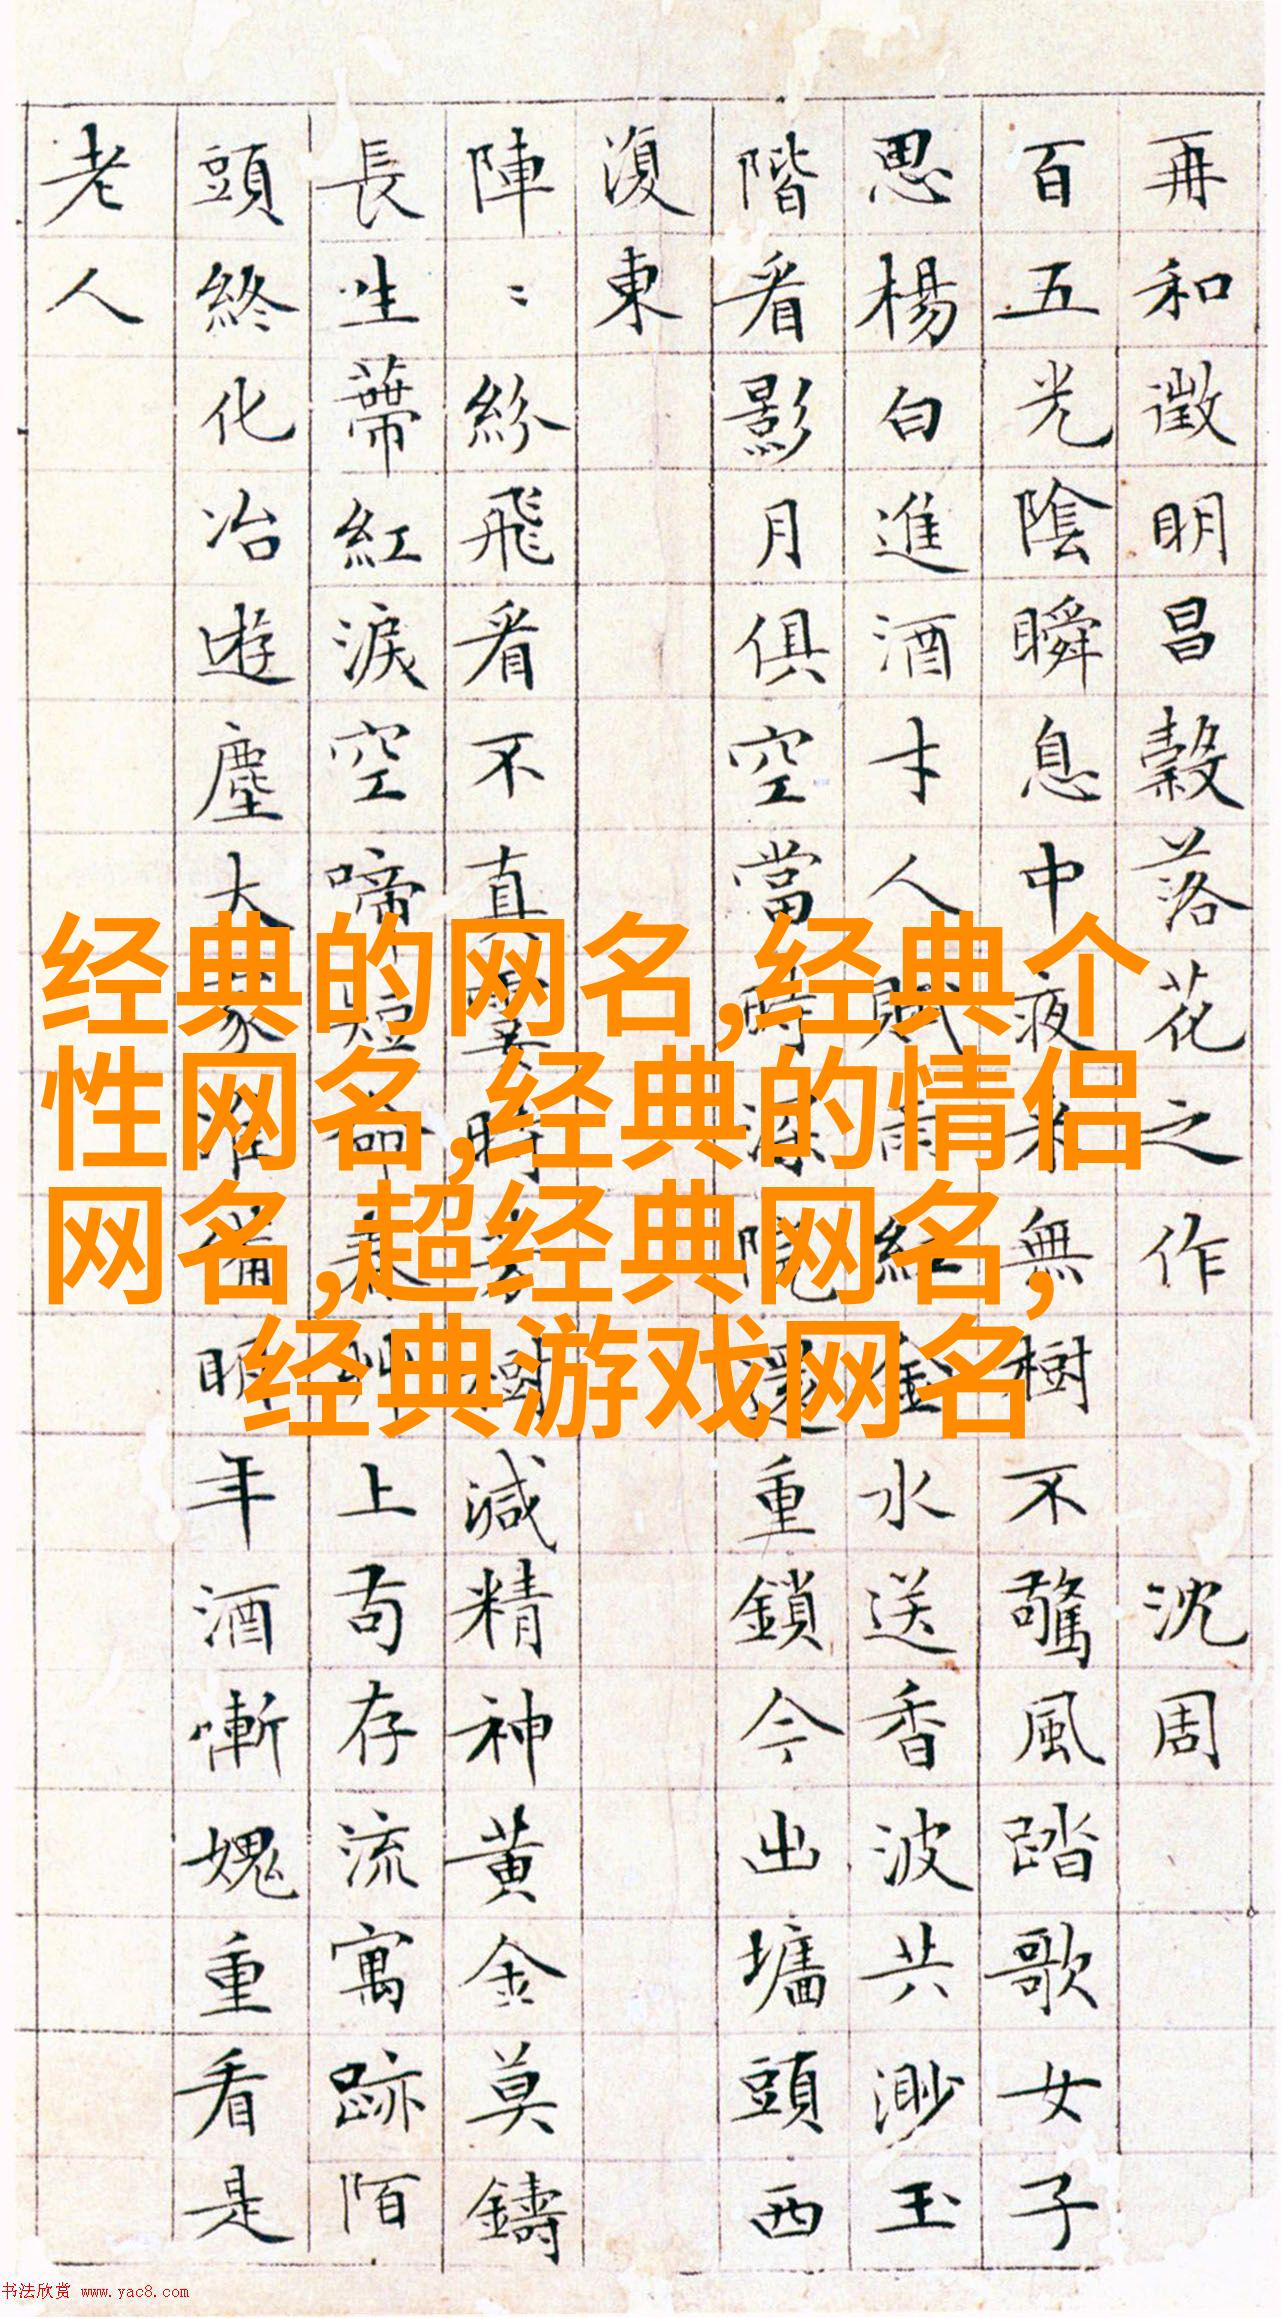 再和徵明昌穀落花之作 沈周
百五光陰瞬息中夜來無樹不驚風踏歌女子
思楊白進酒才人賦雨紅金水送香波共渺玉
階看影月俱空當時深院還重鎖今出墻頭西
復東
陣〻紛飛看不真霎時芳樹減精神黃金莫鑄
長生蔕紅淚空啼短命春艸上苟存流寓跡陌
頭終化冶遊塵大家准備明年酒慚媿重看是
老人
经典的网名,经典个
性网名,经典的情侣
网名,超经典网名,
经典游戏网名
书法欣赏 www.yac8.com